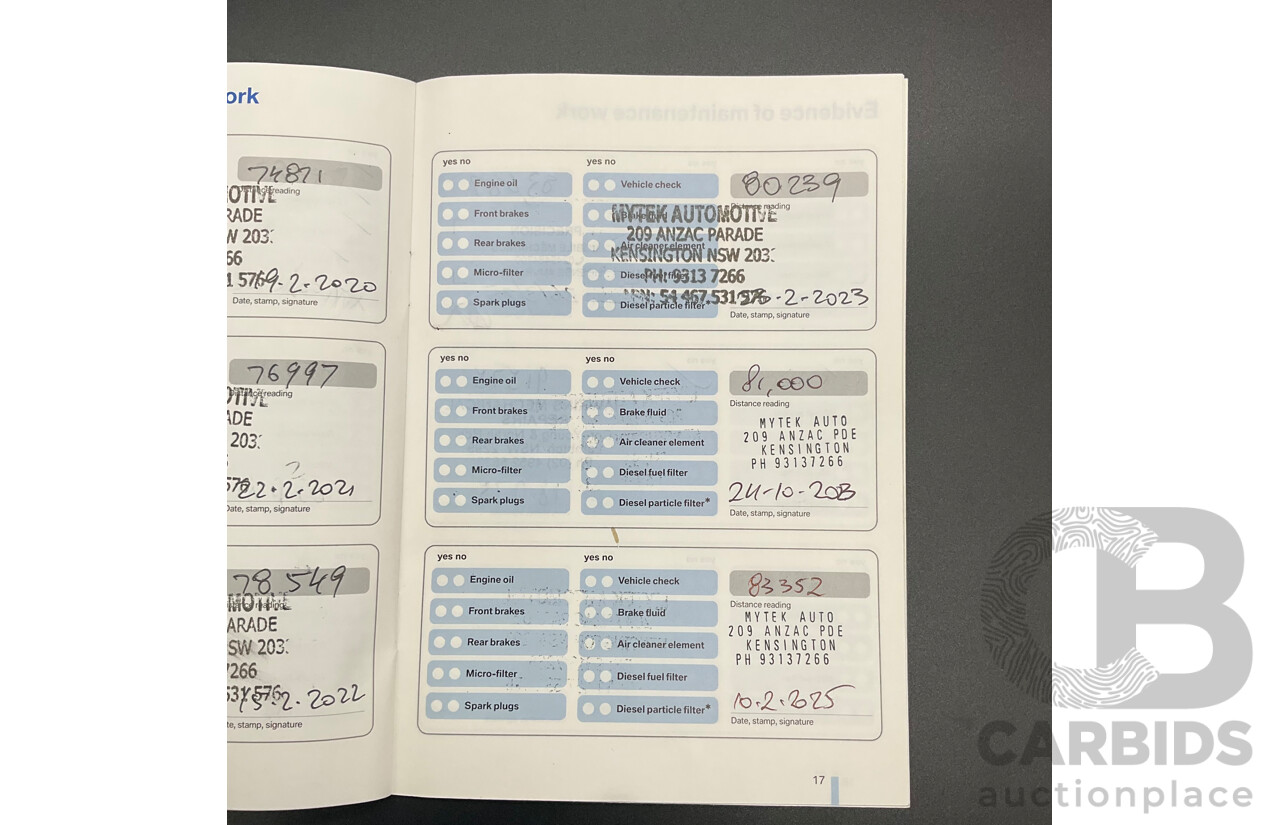 ork
74871
Distance reading
RADE
W 203
66
1 576
9.2.2020
Date, stamp, signature
76997
Distance reading
ADE
203
576
22.2.2021
Date, stamp, signature
78.549
ARADE
SW 203
7266
531 576
2.2022
te, stamp, signature
yes no
yes no
Engine oil
Vehicle check
80239
Distance reading
Front brakes
Brake fluid
MYTEK AUTOMOTIVE
209 ANZAC PARADE
Rear brakes
Air cleaner element
KENSINGTON NSW 203
Micro-filter
Diesel fuel filter
PH: 9313 7266
Spark plugs
Diesel particle filter*
ABN: 54 467.531 576
.2.2023
Date, stamp, signature
yes no
yes no
Engine oil
Vehicle check
81,000
Distance reading
Front brakes
Brake fluid
MYTEK AUTO
209 ANZAC PDE
Rear brakes
Air cleaner element
KENSINGTON
PH 93137266
Micro-filter
Diesel fuel filter
Spark plugs
Diesel particle filter*
24-10-203
Date, stamp, signature
yes no
yes no
Engine oil
Vehicle check
83352
Distance reading
Front brakes
Brake fluid
MYTEK AUTO
209 ANZAC PDE
Rear brakes
Air cleaner element
KENSINGTON
PH 93137266
Micro-filter
Diesel fuel filter
Spark plugs
Diesel particle filter*
10.2.2025
Date, stamp, signature
17
CB
CARBIDS
auctionplace